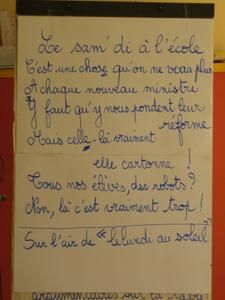 Le sam' di à l'école
C'est une chose qu'on ne verra plus
A chaque nouveau ministre
Y faut qu'y nous pondent leur
réforme
Mais celle-là vraiment
elle cartonne !
Tous nos élèves, des robots ?
Non, là c'est vraiment trop !
Sur l'air de "le lundi au soleil"
argumentaires sur la